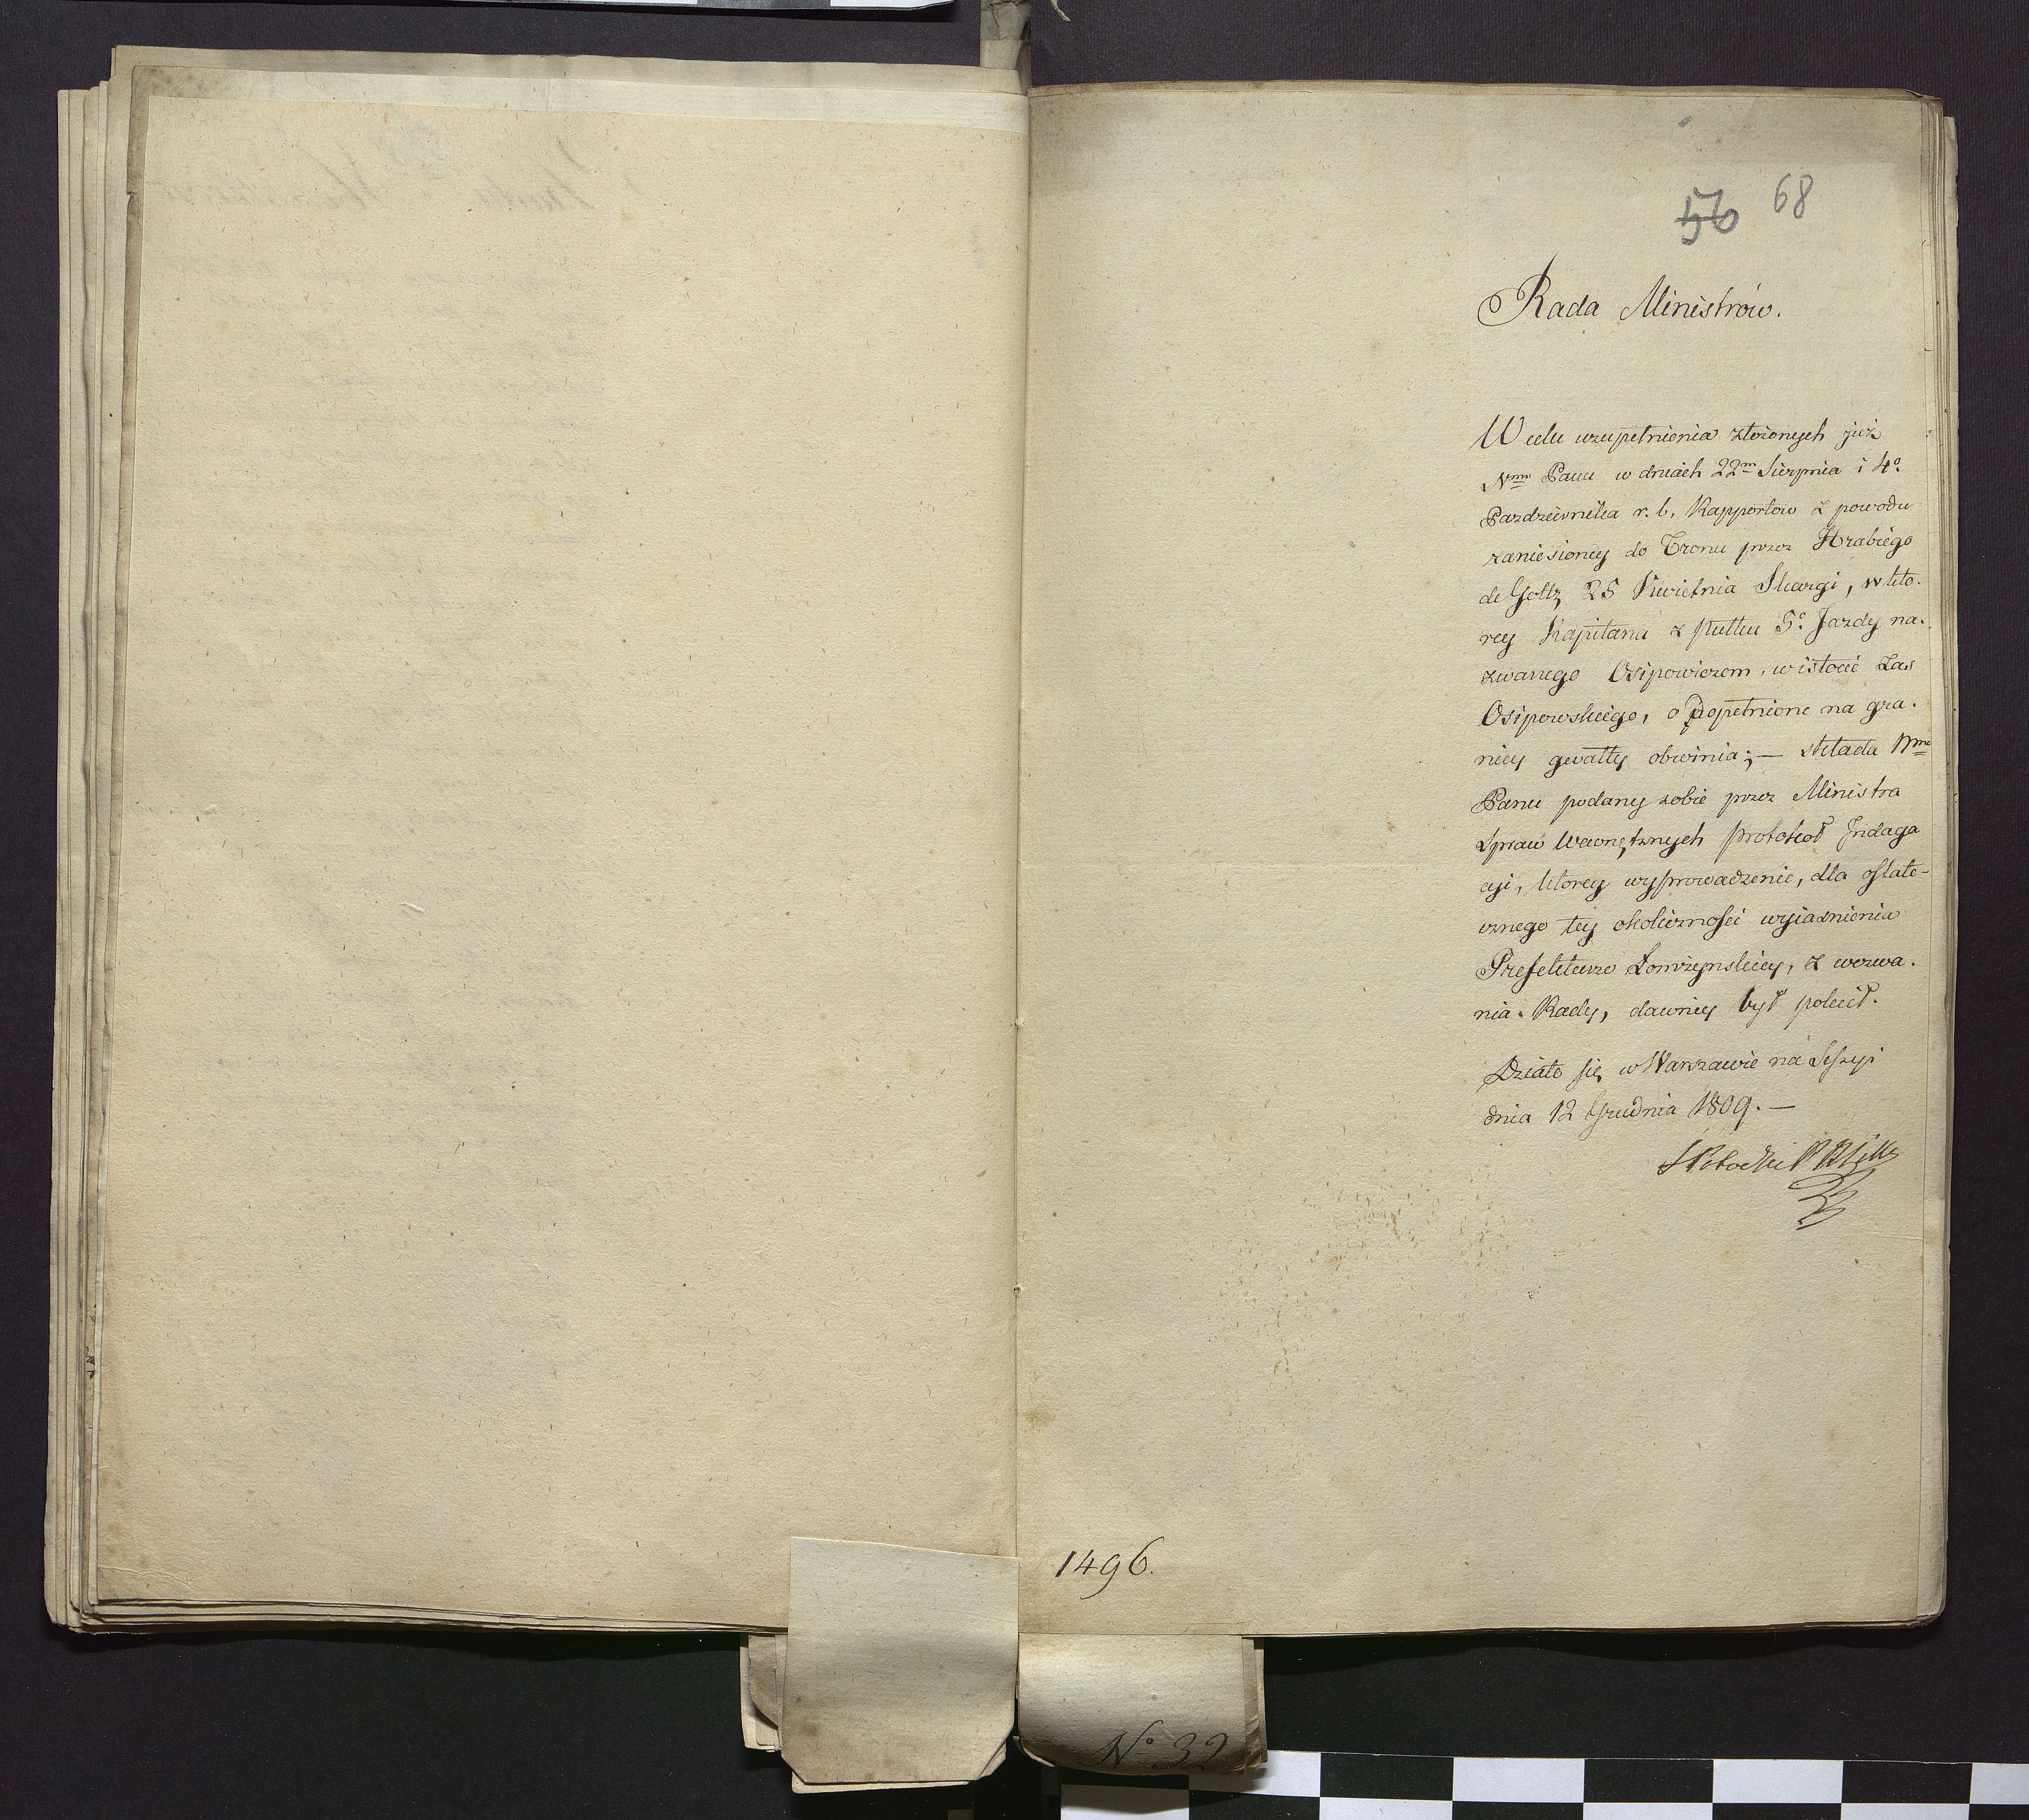 56 68
Rada Ministrów.
W celu uzupełnienia złożonych już
Nmu Panu w dniach 22m Sierpnia i 4o
Pazdziernika r. b. Rapportow z powodu
zaniesioney do Tronu przez Hrabiego
de Goltz 25 Kwietnia Skargi, w kto-
rey Kapitana z Pułku 5o Jazdy na-
zwanego Osipowiczem, w istocie zas
Osipowskiego, o popełnione na gra-
nicy gwałty obwinia; — składa Nmu
Panu podany sobie przez Ministra
Spraw Wewnętrznych Protokoł Indaga
cyi, ktorey wyprowadzenie, dla ostate-
cznego tey okoliczności wyiasnienia
Prefekturze Łomżyńskiey, z wezwa-
nia Rady, dawniey był polecił.
Działo się w Warszawie na Sessyi
dnia 12 Grudnia 1809. —
S Potocki P
1496.
No 32